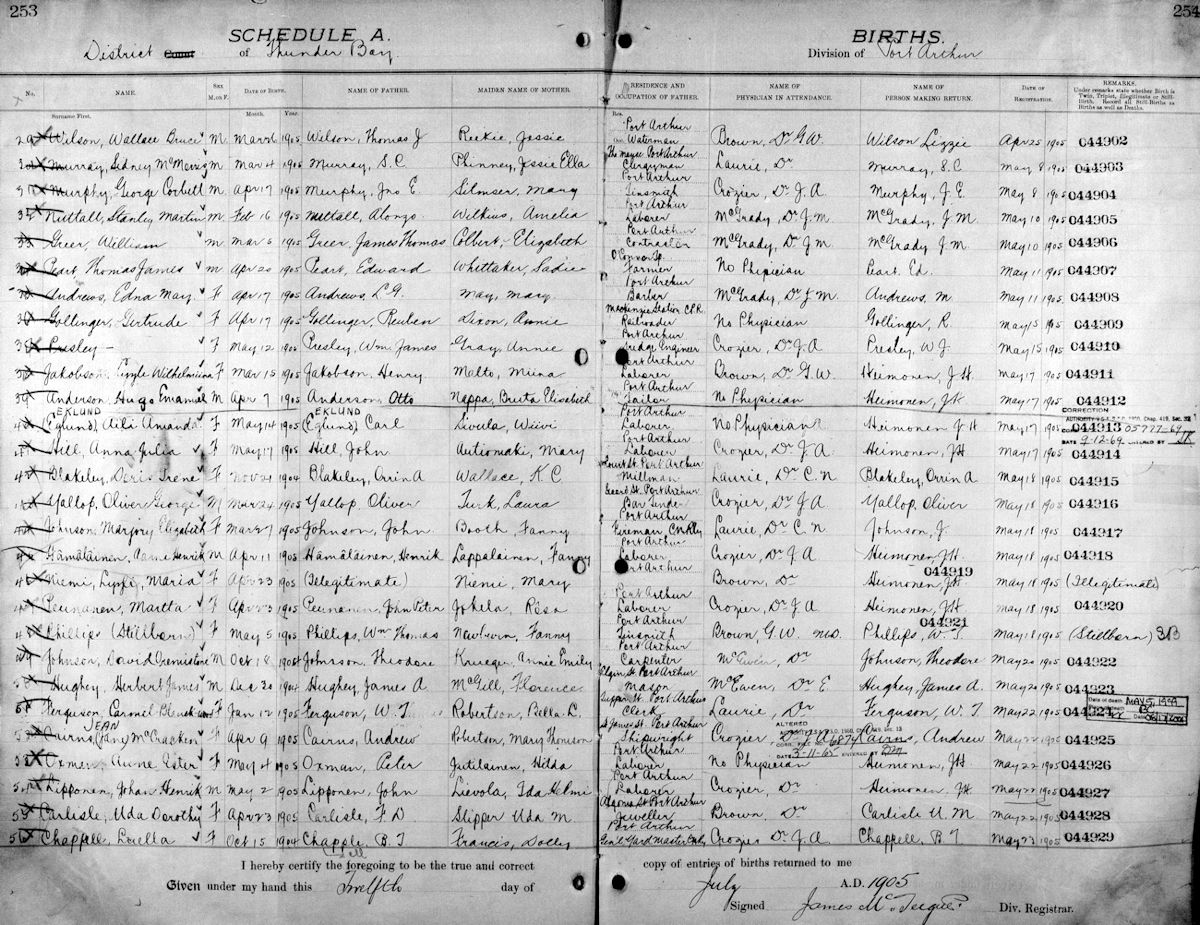 253
254
SCHEDULE A. BIRTHS.
District County of Thunder Bay. Division of Port Arthur
No. NAME. Sex M. or F. DATE OF BIRTH. NAME OF FATHER. MAIDEN NAME OF MOTHER. RESIDENCE AND OCCUPATION OF FATHER. NAME OF PHYSICIAN IN ATTENDANCE. NAME OF PERSON MAKING RETURN. DATE OF REGISTRATION. REMARKS. Under remarks state whether Birth is Twin, Triplet, Illegitimate or Still-Birth. Record all Still-Births as Births as well as Deaths.
Surname First. Month. Year. Res.
Wilson, Wallace Bruce M Mar 6 1905 Wilson, Thomas J Reekie, Jessie Port Arthur Waterman Brown, Dr G W Wilson Lizzie Apr 25 1905 044902
Murray, Sidney M Mar 4 1905 Murray, S. C Phinney, Jessie Ella Port Arthur Clergyman Laurie, Dr Murray, S. C May 8 1905 044903
Murphy, George Corbett M Apr 17 1905 Murphy, Jno E. Silmser, Mary Port Arthur Tinsmith Crozier, Dr J. A Murphy, J. E. May 8 1905 044904
Nuttall, Stanley Martin M Feb 16 1905 Nuttall, Alonzo Wilkins, Amelia Port Arthur Laborer McGrady, Dr J. M. McGrady, J. M. May 10 1905 044905
Greer, William M Mar 5 1905 Greer, James Thomas Colbert, Elizabeth Port Arthur Contractor McGrady, Dr J. M McGrady J. M May 10 1905 044906
Peart, Thomas James M Apr 20 1905 Peart, Edward Whittaker, Sadie O'Connor Tp. Farmer No Phipician Peart. Ed. May 11 1905 044907
Andrews, Edna May F Apr 17 1905 Andrews, L. G. May, Mary Port Arthur Barber McGrady, Dr J M. Andrews, M. May 11 1905 044908
Gollinger, Gertrude F Apr 17 1905 Gollinger, Reuben Dixon, Annie Mackenzie Station C.P.R. Railroader No Physician Gollinger, R. May 15 1905 044909
Presley - F May 12 1905 Presley, Wm. James Gray, Annie Port Arthur Dredge Engineer Crozier, Dr J. A Presley W J. May 15 1905 044910
Jakobson, Wilhelmiina F Mar 15 1905 Jakobson, Henry Malto, Miina Port Arthur Laborer Brown, Dr G. W. Heimonen, J H. May 17 1905 044911
Anderson, Hugo Emanuel M Apr 7 1905 Anderson, Otto Neppa, Brita Elisabeth Port Arthur Tailor No Physician Heimonen, J H May 17 1905 044912
EKLUND EKLUND CORRECTION
(Eglund) Aili Amanda F May 14 1905 (Eglund) Carl Livula, Wiivi Port Arthur Laborer No Physician Heimonen J H May 17 1905 044913 05777-69
DATE 9-12-69 ENTERED BY
Hill, Anna Julia F May 17 1905 Hill, John Autiomaki, Mary Port Arthur Laborer Crozier, Dr J. A Heimonen, J H May 17 1905 044914
Blakeley, Doris Irene F Nov 21 1904 Blakeley, Orrin A Wallace, K. C. Port Arthur Millman Laurie, Dr C. N Blakeley, Orrin A May 18 1905 044915
Yallop, Oliver George M Mar 24 1905 Yallop, Oliver Turk, Laura Port Arthur Bar Tender Crozier, Dr J. A Yallop Oliver May 18 1905 044916
Johnson, Marjory Elizabeth F Mar 27 1905 Johnson, John Booth, Fanny Port Arthur Fireman Laurie, Dr C. N Johnson, J. May 18 1905 044917
Hämäläinen, Henrik M Apr 11 1905 Hämäläinen, Henrik Lappalainen, Fanny Port Arthur Laborer Crozier, Dr J. A Heimonen, J.H. May 18 1905 044918
Niemi, Maria F Apr 23 1905 (Illegitimate) Niemi, Mary Port Arthur Brown, Dr Heimonen, J H May 18 1905 044919 (Illegitimate)
Peunanen, Martta F Apr 23 1905 Peunanen, John Peter Johela, Rosa Port Arthur Laborer Crozier, Dr J. A Heimonen, J H May 18 1905 044920
Phillips (Stillborn) F May 5 1905 Phillips, Wm Thomas Newburn, Fanny Port Arthur Tinsmith Brown, G. W. MD. Phillips, W. T. May 18 1905 044921 (Stillborn)
Johnson, David M Oct 18 1904 Johnson, Theodore Krueger, Annie Emily Port Arthur Carpenter McEwen, Dr Johnson, Theodore May 20 1905 044922
Hughey, Herbert James M Dec 30 1904 Hughey, James A McGill, Florence Elgin St. Port Arthur Mason McEwen, Dr E. Hughey, James A. May 20 1905 044923
Ferguson, F Jan 12 1905 Ferguson, W. T. Robertson, Bella L. Port Arthur Clerk Laurie, Dr Ferguson, W. T. May 22 1905 044924 MAY 5, 1999
JEAN ALTERED
Cairns, (Jane) McCracken F Apr 9 1905 Cairns, Andrew Robertson, Mary Thomson St James St. Port Arthur Shipwright Crozier Cairns, Andrew May 22 1905 044925
DATE 3-11-65 ENTERED BY
Oxman, Anne Ester F May 4 1905 Oxman, Peter Jutilainen, Hilda Port Arthur Laborer No Physician Heimonen, J H. May 22 1905 044926
Lipponen, Johan Henrik M May 2 1905 Lipponen, John Lievola, Ida Helmi Port Arthur Laborer Crozier, Dr Heimonen, J H May 22 1905 044927
Carlisle, Uda Dorothy F Apr 23 1905 Carlisle, F D Slipper Uda M. Algoma St Port Arthur Jeweller Brown, Dr Carlisle U. M. May 22 1905 044928
Chappell, Luella F Oct 15 1904 Chapple, B. T Francis, Dolly Port Arthur Crozier Dr J. A Chappell, B. T May 23 1905 044929
I hereby certify the foregoing to be the true and correct copy of entries of births returned to me
Given under my hand this Twelfth day of July A.D. 1905
Signed James McTeigue. Div. Registrar.